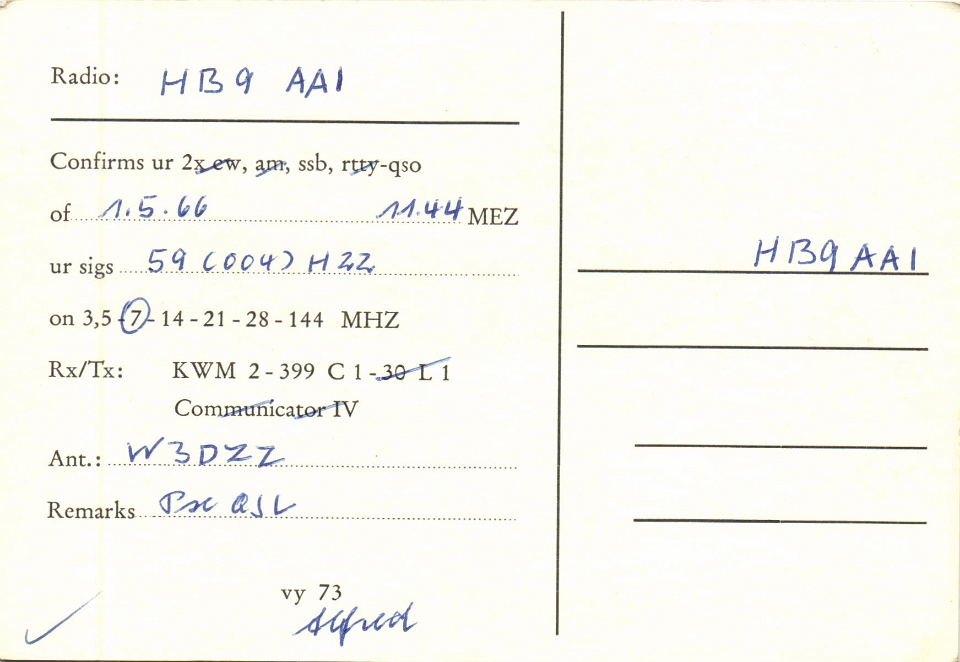 Radio: HB9 AA1
Confirms ur 2x cw, am, ssb, rtty-qso
of 1.5.66 11.44 MEZ
ur sigs 59 (004) HZZ
on 3,5 - 7 - 14 - 21 - 28 - 144 MHZ
Rx/Tx: KWM 2 - 399 C 1 - 30 L 1
Communicator IV
Ant.: W3DZZ
Remarks Pse QSL
vy 73
Alfred
HB9 AA1